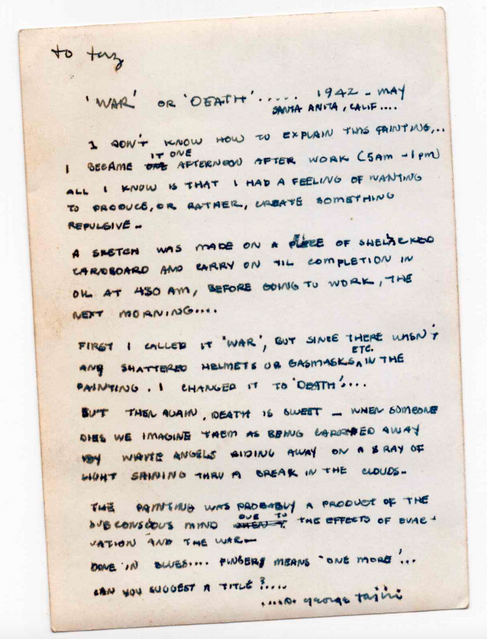 to taz
'WAR' OR 'DEATH'..... 1942 - MAY
SANTA ANITA, CALIF....
I DON'T KNOW HOW TO EXPLAIN THIS PAINTING...
I BECAME IT ONE AFTERNOON AFTER WORK (5AM - 1PM)
ALL I KNOW IS THAT I HAD A FEELING OF WANTING
TO PRODUCE, OR RATHER, CREATE SOMETHING
REPULSIVE -
A SKETCH WAS MADE ON A PIECE OF SHELACKED
CARDBOARD AND CARRY ON TIL COMPLETION IN
OIL AT 430 AM, BEFORE GOING TO WORK, THE
NEXT MORNING....
FIRST I CALLED IT 'WAR', BUT SINCE THERE WASN'T
ANY SHATTERED HELMETS OR GASMASKS, ETC. IN THE
PAINTING. I CHANGED IT TO 'DEATH'....
BUT THEN AGAIN, DEATH IS SWEET - WHEN SOMEONE
DIES WE IMAGINE THEM AS BEING CARRIED AWAY
BY WHITE ANGELS RIDING AWAY ON A RAY OF
LIGHT SHINING THRU A BREAK IN THE CLOUDS..
THE PAINTING WAS PROBABLY A PRODUCT OF THE
SUBCONSCOUS MIND DUE TO THE EFFECTS OF EVAC-
UATION AND THE WAR -
DONE IN BLUES.... FINGERS MEANS 'ONE MORE'...
CAN YOU SUGGEST A TITLE?....
george